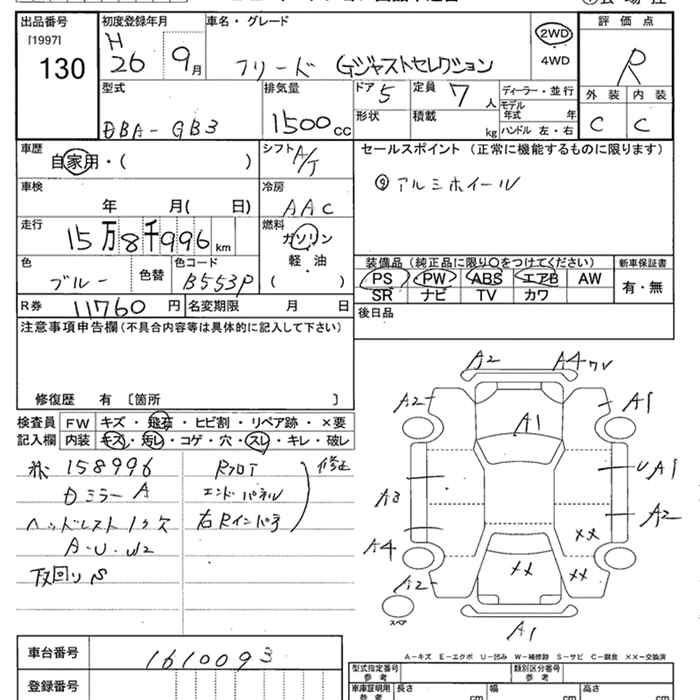 出品番号
[1997]
130
初度登録年月
H
26 9月
車名・グレード
フリード Gジャストセレクション
2WD
4WD
評価点
R
外装 内装
C C
型式
DBA-GB3
排気量
1500cc
ドア 5
形状
定員 7人
積載 kg
ディーラー・並行
モデル年式 年
ハンドル 左・右
車歴
自家用・( )
シフト A/T
セールスポイント (正常に機能するものに限ります)
⑨アルミホイール
車検
年 月( 日)
冷房
AAC
走行
15万8千996km
燃料
ガソリン
軽・油
( )
色
ブルー
色替
色コード
B553P
装備品(純正品に限り○をつけてください)
新車保証書
PS PW ABS エアB AW
有・無
SR ナビ TV カワ
R券 11760円
名変期限 月 日
後日品
注意事項申告欄(不具合内容等は具体的に記入して下さい)
修復歴 有 〔箇所 〕
検査員
記入欄
FW キズ・飛石・ヒビ割・リペア跡・×要
内装 キズ・汚レ・コゲ・穴・スレ・キレ・破レ
158996
Dミラー A
ヘッドレスト1ケ欠
A・U・W2
下回りS
Rフロア
エンドパネル
右Rインパネ
修正
A2 A4
A2 A1
A1
UA1
A3
A2
A4
××
×× ××
A2
スペア
A1
A-キズ E-エクボ U-凹み W-補修跡 S-サビ C-腐食 ××-交換済
車台番号 1610093
登録番号
型式指定番号
参考
類別区分番号
参考
車庫証明用
参考
長さ cm
幅 cm
高さ cm